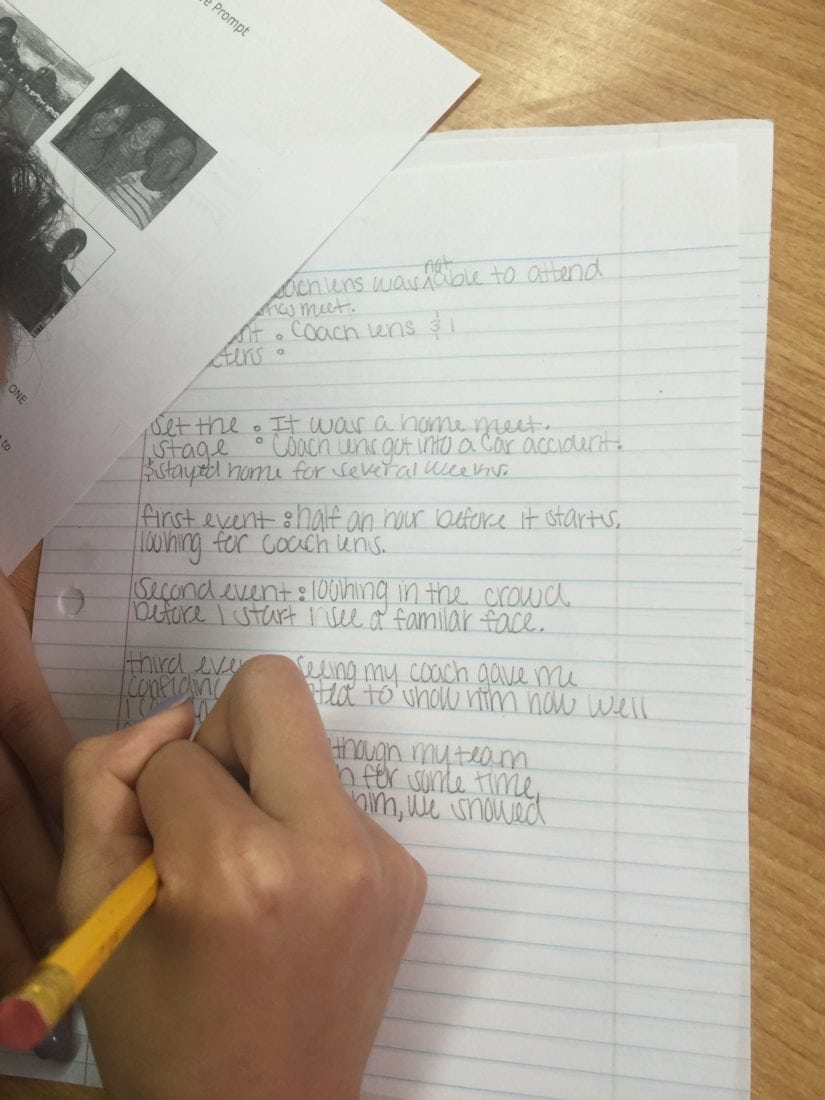 Prompt
ONE
to
not
Coach Lens was able to attend
meet.
Coach Lens & I
Set the : It was a home meet.
stage : Coach Lens got into a car accident.
& stayed home for several weeks.
first event : half an hour before it starts,
looking for Coach Lens.
second event : looking in the crowd
before I start I see a familar face.
third seeing my coach gave me
to show him how well
I
though my team
for some time,
him, we showed